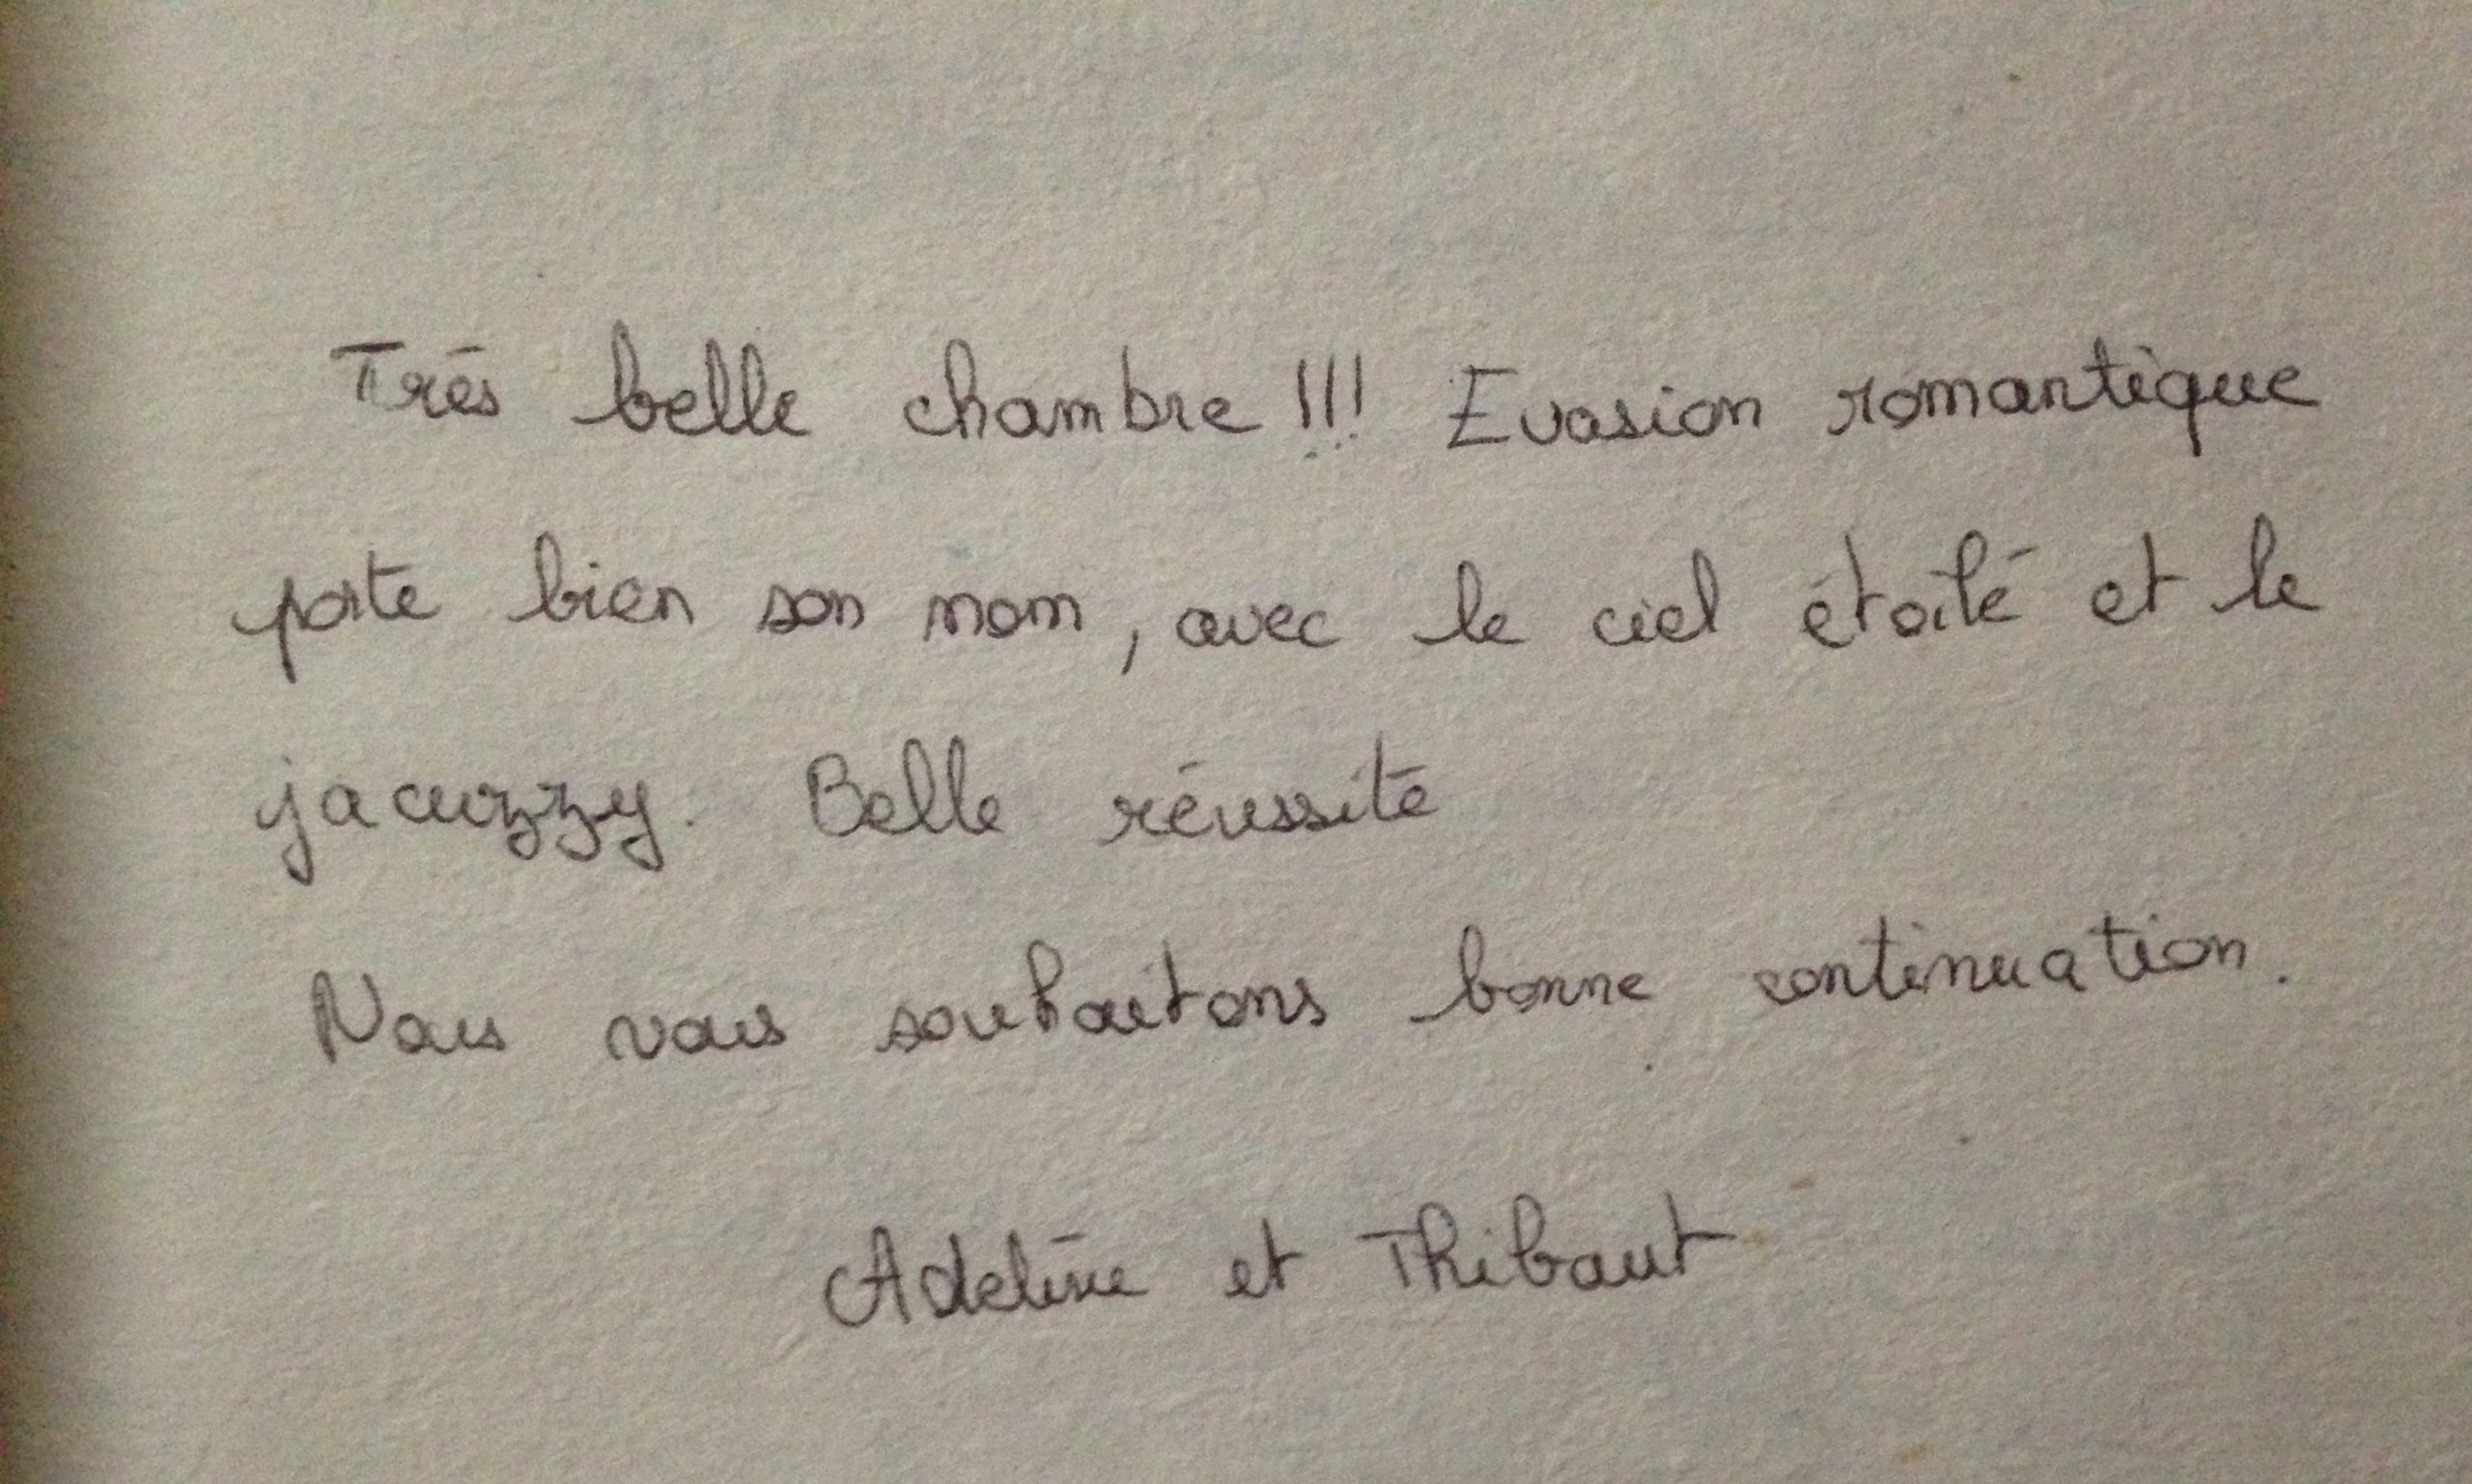 Très belle chambre !!! Evasion romantique
porte bien son nom, avec le ciel étoilé et le
jacuzzy. Belle réussite
Nous vous souhaitons bonne continuation.
Adeline et Thibaut